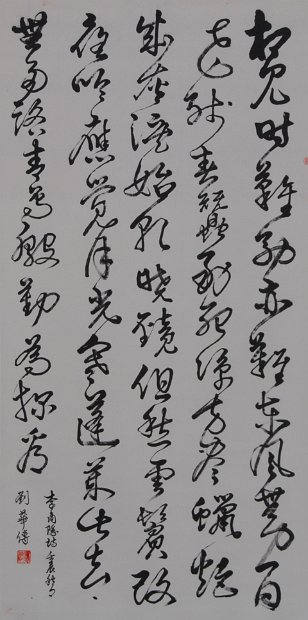 相見時難別亦難東風無力百
花殘春蠶到死絲方盡蠟炬
成灰淚始乾曉鏡但愁雲鬢改
夜吟應覺月光寒蓬萊此去
無多路青鳥殷勤為探看
李商隱詩壬辰秋月
劉華傳